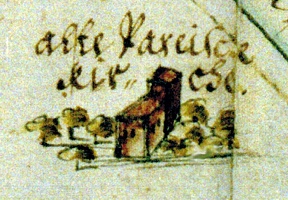 alte Pareische
Kir„ che.